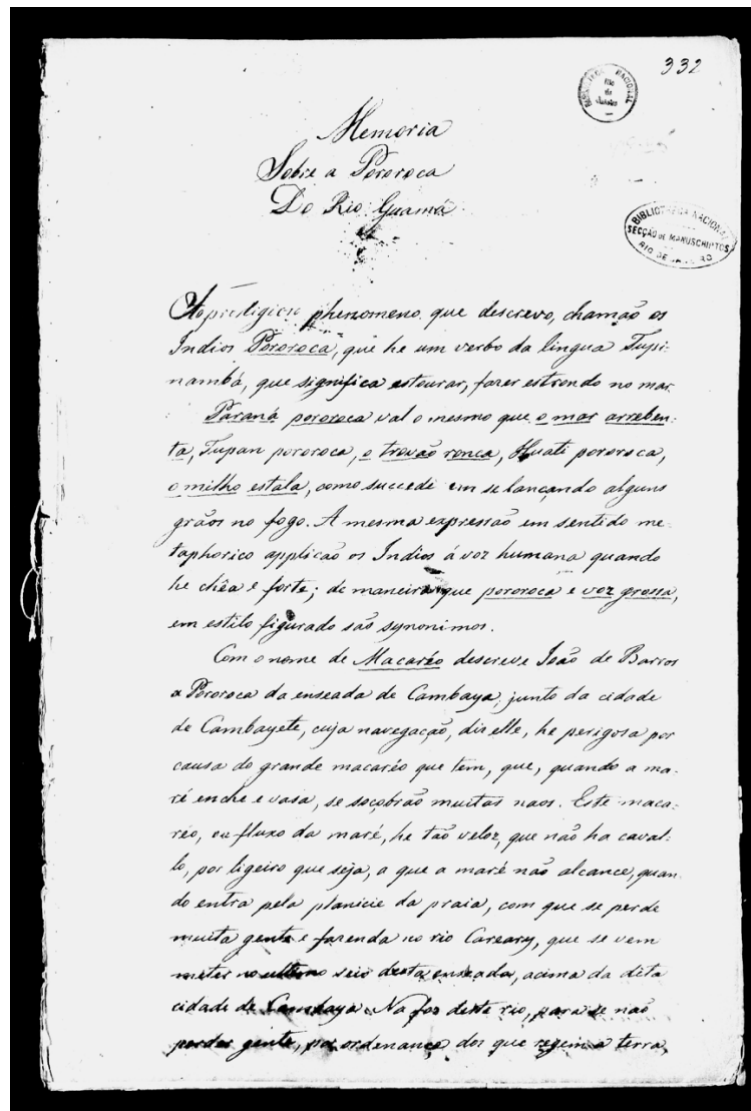 332
BIBLIOTHECA NACIONAL
Rio
de
Janeiro
Memoria
Sobre a Pororoca
Do Rio Guamá
BIBLIOTHECA NACIONAL
SECÇÃO DE MANUSCRIPTOS
RIO DE JANEIRO
Ao prodigioso phenomeno que descrevo, chamão os
Indios Pororoca, que he um verbo da lingua Tupi-
nambá, que significa estourar, fazer estrondo no mar.
Paraná pororoca val o mesmo que o mar arreben-
ta, Tupan pororoca, o trovão ronca, Auati pororoca,
o milho estala, como succede em se lançando alguns
grãos no fogo. A mesma expressão em sentido me-
taphorico applicão os Indios á voz humana quando
he chêa e forte; de maneira que pororoca e voz grossa,
em estilo figurado são synonimos.
Com o nome de Macaréo descreve João de Barros
a Pororoca da enseada de Cambaya, junto da cidade
de Cambayete, cuja navegação, diz elle, he perigosa por
causa do grande macaréo que tem, que, quando a ma-
ré enche e vasa, se soçobrão muitas naos. Este maca-
réo, ou fluxo da maré, he tão veloz, que não ha caval-
lo, por ligeiro que seja, a que a maré não alcance, quan-
do entra pela planicie da praia, com que se perde
muita gente e fazenda no rio Careary, que se vem
meter no ultimo seio desta enseada, acima da dita
cidade de Cambaya. Na foz deste rio, para se não
perder gente, por ordenança dos que regem a terra,